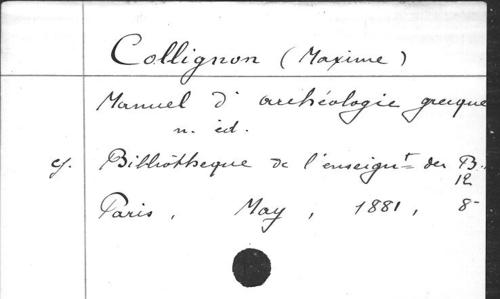 Collignon (Maxime)
Manuel d'archéologie grecque
n. éd.
cf. Bibliothèque de l'enseignt des B.
12
Paris, May, 1881, 8-